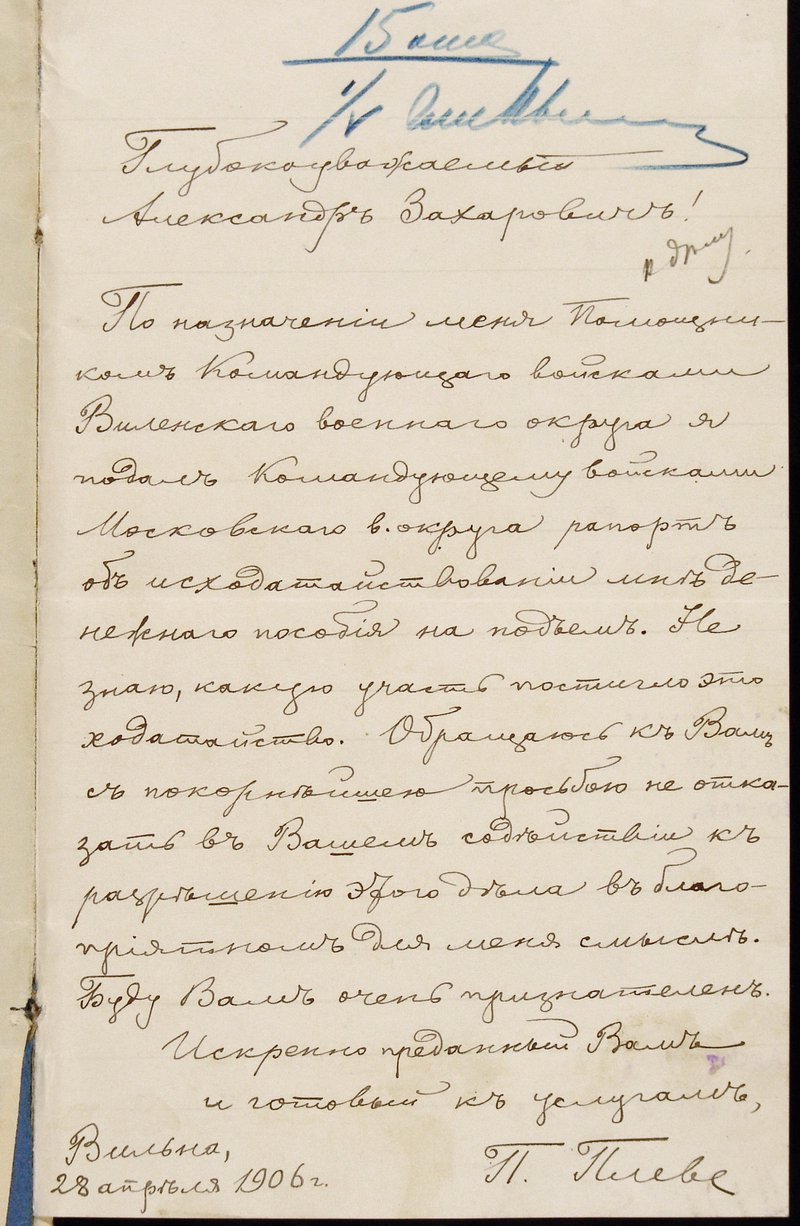 15
Глубокоуважаемый
Александръ Захаровичъ!
По назначеніи меня Помощни-
комъ Командующаго войсками
Виленскаго военнаго округа я
подалъ Командующему войсками
Московскаго в. округа рапортъ
объ исходатайствованіи мнѣ де-
нежнаго пособія на подъемъ. Не
знаю, какую участь постигло это
ходатайство. Обращаюсь къ Вамъ
съ покорнѣйшею просьбою не отка-
зать въ Вашемъ содѣйствіи къ
разрѣшенію этого дѣла въ благо-
пріятномъ для меня смыслѣ.
Буду Вамъ очень признателенъ.
Искренно преданный Вамъ
и готовый къ услугамъ,
П. Плеве
Вильна,
28 апрѣля 1906 г.